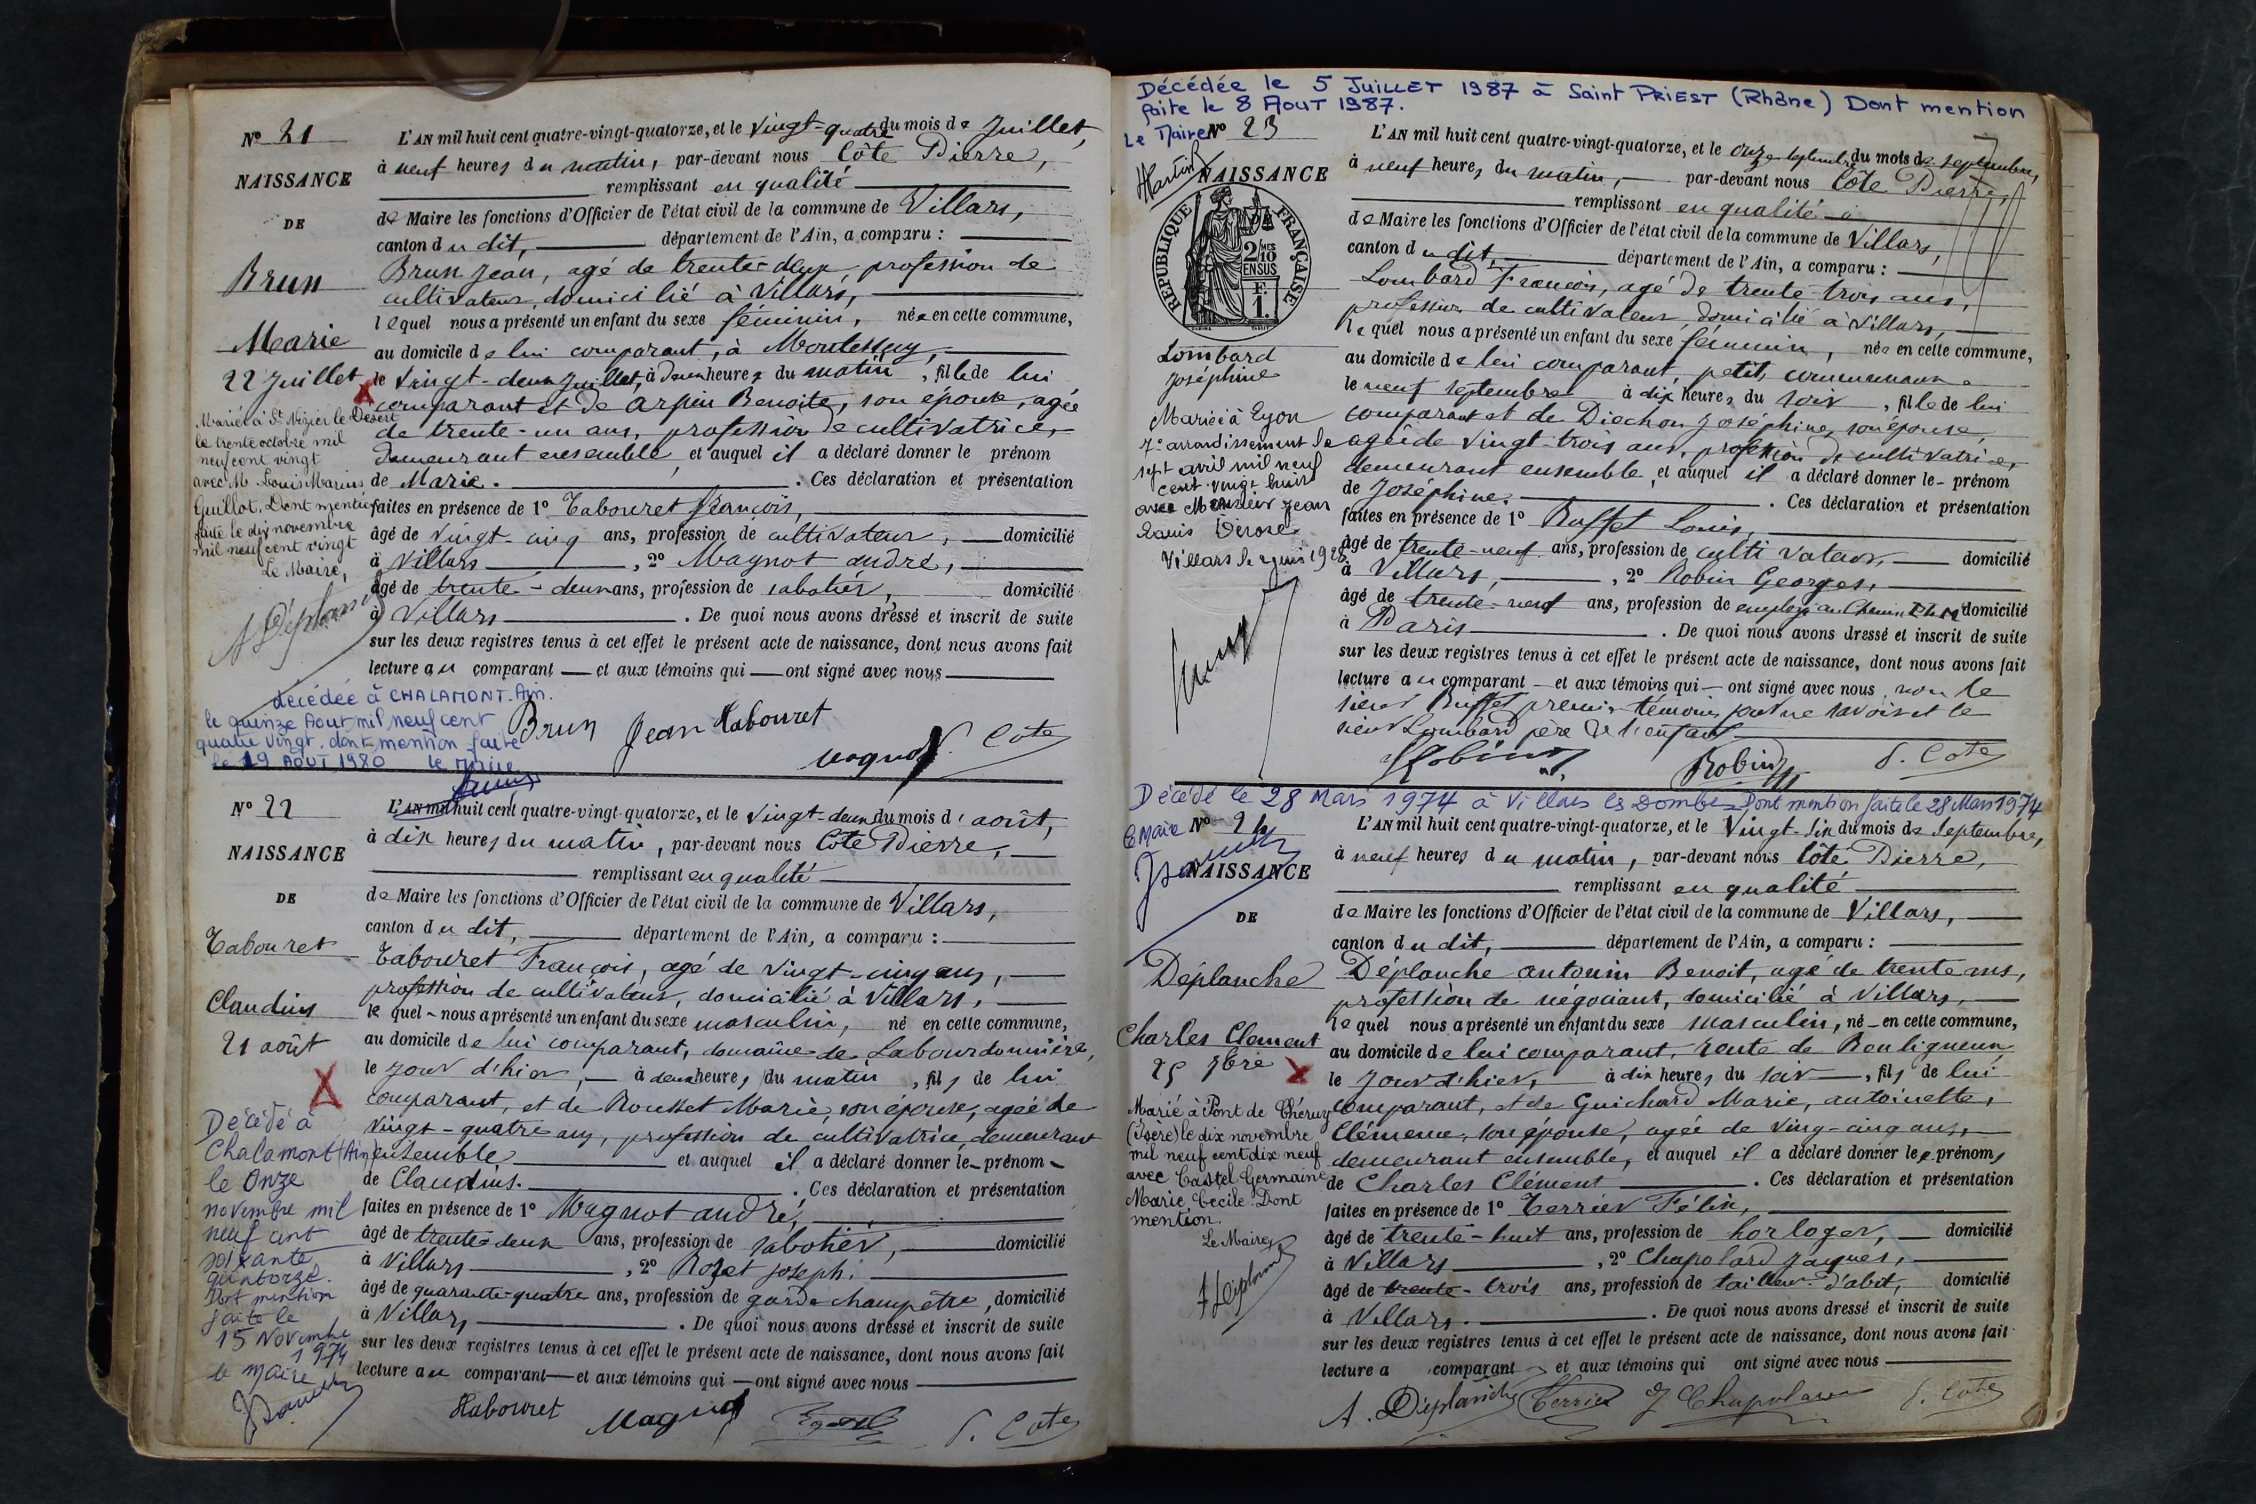 N° 21
NAISSANCE
DE
Brun
Marie
22 Juillet
Mariée à St Nizier le Désert
le trente octobre mil
neuf cent vingt
avec M. Louis Marius
Guillot. Dont mention
faite le dix novembre
mil neuf cent vingt
Le Maire,
décédée à CHALAMONT. Ain.
le quinze Aout mil neuf cent
quatre vingt. dont mention faite
le 19 AOUT 1980 le Maire
L'AN mil huit cent quatre-vingt-quatorze, et le vingt-quatre du mois de Juillet,
à neuf heures du matin, par-devant nous Côte Pierre,
remplissant en qualité
de Maire les fonctions d'Officier de l'état civil de la commune de Villars,
canton du dit, département de l'Ain, a comparu :
Brun Jean, agé de trente-deux, profession de
cultivateur, domicilié à Villars,
lequel nous a présenté un enfant du sexe féminin, née en cette commune,
au domicile de lui comparant, à Montessuy,
le vingt-deux Juillet, à deux heures du matin, fille de lui
comparant et de Arpin Benoite, son épouse, agée
de trente-un ans, profession de cultivatrice,
demeurant ensemble, et auquel il a déclaré donner le prénom
de Marie. Ces déclaration et présentation
faites en présence de 1° Tabouret François,
âgé de vingt-cinq ans, profession de cultivateur, domicilié
à Villars, 2° Magnot andré,
âgé de trente-deux ans, profession de sabotier, domicilié
à Villars. De quoi nous avons dressé et inscrit de suite
sur les deux registres tenus à cet effet le présent acte de naissance, dont nous avons fait
lecture au comparant et aux témoins qui ont signé avec nous
Brun Jean Tabouret
Magnot P. Cote
N° 22
NAISSANCE
DE
Tabouret
Claudius
21 août
Décédé à
Chalamont (Ain)
le Onze
novembre mil
neuf cent
soixante
quatorze.
Dont mention
faite le
15 Novembre
1974
le Maire
L'AN mil huit cent quatre-vingt-quatorze, et le vingt-deux du mois d'août,
à dix heures du matin, par-devant nous Côte Pierre,
remplissant en qualité
de Maire les fonctions d'Officier de l'état civil de la commune de Villars,
canton du dit, département de l'Ain, a comparu :
Tabouret François, agé de vingt-cinq ans,
profession de cultivateur, domicilié à Villars,
lequel nous a présenté un enfant du sexe masculin, né en cette commune,
au domicile de lui comparant, domaine de Labourdonnière,
le jour d'hier, à deux heures du matin, fils de lui
comparant, et de Rousset Marie, son épouse, agée de
vingt-quatre ans, profession de cultivatrice, demeurant
ensemble et auquel il a déclaré donner le prénom
de Claudius. Ces déclaration et présentation
faites en présence de 1° Magnot andré,
âgé de trente-deux ans, profession de sabotier, domicilié
à Villars, 2° Rozet Joseph.
âgé de quarante-quatre ans, profession de garde champêtre, domicilié
à Villars. De quoi nous avons dressé et inscrit de suite
sur les deux registres tenus à cet effet le présent acte de naissance, dont nous avons fait
lecture au comparant et aux témoins qui ont signé avec nous
Tabouret Magnot P. Cote
Décédée le 5 JUILLET 1987 à Saint PRIEST (Rhône) Dont mention
faite le 8 AOUT 1987.
Le Maire
N° 23
NAISSANCE
RÉPUBLIQUE FRANÇAISE
2/10 EN SUS
F. 1.
Lombard
Joséphine
Mariée à Lyon
7e arrondissement le
sept avril mil neuf
cent vingt huit
avec Monsieur Jean
Louis
L'AN mil huit cent quatre-vingt-quatorze, et le onze septembre du mois de septembre,
à neuf heures du matin, par-devant nous Côte Pierre,
remplissant en qualité
de Maire les fonctions d'Officier de l'état civil de la commune de Villars,
canton du dit, département de l'Ain, a comparu :
Lombard François, agé de trente-trois ans,
profession de cultivateur, domicilié à Villars,
lequel nous a présenté un enfant du sexe féminin, née en cette commune,
au domicile de lui comparant, petit
le neuf septembre à dix heures du soir, fille de lui
comparant et de Diochon Joséphine, son épouse,
agée de vingt-trois ans, profession de cultivatrice,
demeurant ensemble, et auquel il a déclaré donner le prénom
de Joséphine. Ces déclaration et présentation
faites en présence de 1° Buffet Louis,
âgé de trente-neuf ans, profession de cultivateur, domicilié
à Villars, 2° Robin Georges,
âgé de trente-neuf ans, profession de employé au Chemin P.L.M domicilié
à Paris. De quoi nous avons dressé et inscrit de suite
sur les deux registres tenus à cet effet le présent acte de naissance, dont nous avons fait
lecture au comparant et aux témoins qui ont signé avec nous, non le
sieur Buffet premier témoin pour ne savoir et le
sieur Lombard père de l'enfant
Robin P. Cote
Décédé le 28 Mars 1974 à Villars les Dombes Dont mention faite le 28 Mars 1974
Le Maire
N° 24
NAISSANCE
DE
Déplanche
Charles Clément
25 7bre
Marié à Pont de Chéruy
(Isère) le dix novembre
mil neuf cent dix neuf
avec Castel Germaine
Marie Cecile. Dont
mention.
Le Maire,
L'AN mil huit cent quatre-vingt-quatorze, et le vingt-six du mois de Septembre,
à neuf heures du matin, par-devant nous Côte Pierre,
remplissant en qualité
de Maire les fonctions d'Officier de l'état civil de la commune de Villars,
canton du dit, département de l'Ain, a comparu :
Déplanche antonin Benoit, agé de trente ans,
profession de négociant, domicilié à Villars,
lequel nous a présenté un enfant du sexe masculin, né en cette commune,
au domicile de lui comparant, route de Bouligneux
le jour d'hier, à dix heures du soir, fils de lui
comparant, et de Guichard Marie, antoinette,
Clémence, son épouse, agée de ving-cinq ans,
demeurant ensemble, et auquel il a déclaré donner les prénoms
de Charles Clément. Ces déclaration et présentation
faites en présence de 1° Terrier Félix,
âgé de trente-huit ans, profession de horloger, domicilié
à Villars, 2° Chapolard Jaques,
âgé de trente-trois ans, profession de tailleur d'abit, domicilié
à Villars. De quoi nous avons dressé et inscrit de suite
sur les deux registres tenus à cet effet le présent acte de naissance, dont nous avons fait
lecture a comparant et aux témoins qui ont signé avec nous
A. Déplanche Terrier J Chapolard P. Cote